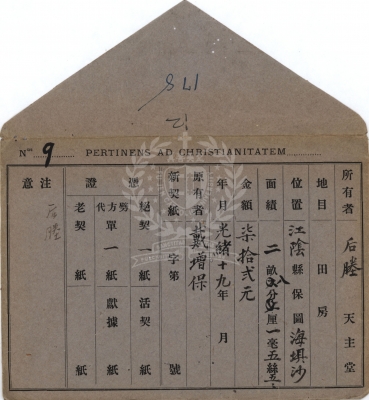 175
12
Nus 9 PERTINENS AD CHRISTIANITATEM
所有者 后塍 天主堂
地目 田 房
位置 江陰縣 保 圖 海垻沙
面積 二畝 分八厘一毫五絲五
金額 柒拾弍元
年月 光緒十九年 月
原有者 戴增保
新契紙 字第 號
證憑
絕契一紙 活契 紙
代方單一紙 獻據 紙
老契 紙 紙
注意
后塍